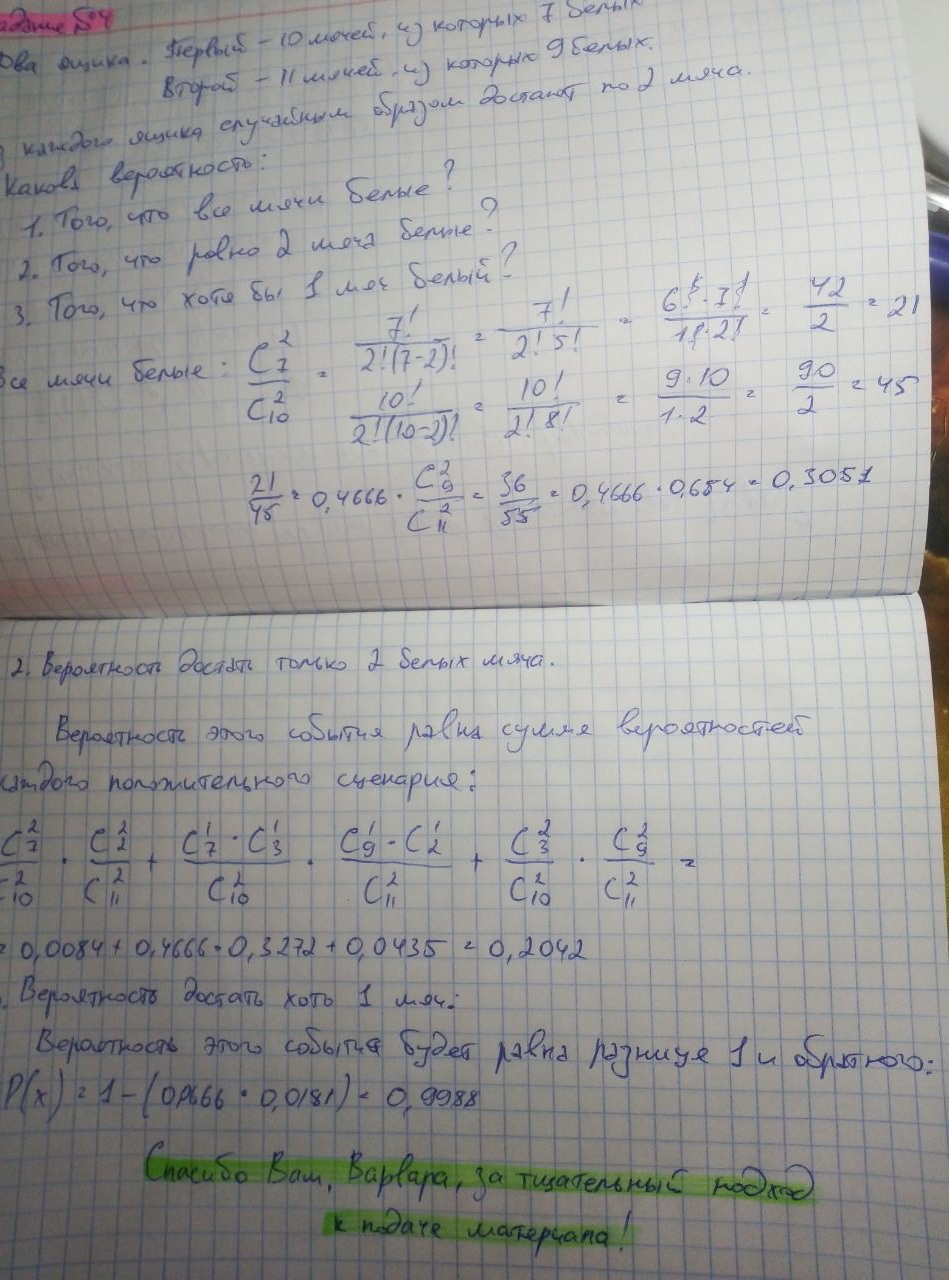 адание №4
Два ящика. Первый - 10 мячей, из которых 7 белых
Второй - 11 мячей, из которых 9 белых.
каждого ящика случайным образом достают по 2 мяча.
Какова вероятность:
1. Того, что все мячи белые?
2. Того, что ровно 2 мяча белые?
3. Того, что хотя бы 1 мяч белый?
Все мячи белые: C_7^2 / C_10^2 = 7! / 2!(7-2)! = 7! / 2! 5! = 6·7 / 1·2! = 42 / 2 = 21
10! / 2!(10-2)! = 10! / 2! 8! = 9·10 / 1·2 = 90 / 2 = 45
21/45 = 0,4666 · C_9^2 / C_11^2 = 36/55 = 0,4666 · 0,654 = 0,3051
2. Вероятность достать только 2 белых мяча.
Вероятность этого события равна сумме вероятностей
каждого положительного сценария:
C_7^2 / C_10^2 · C_2^2 / C_11^2 + C_7^1 · C_3^1 / C_10^2 · C_9^1 · C_2^1 / C_11^2 + C_3^2 / C_10^2 · C_9^2 / C_11^2 =
= 0,0084 + 0,4666 · 0,3272 + 0,0435 = 0,2042
. Вероятность достать хоть 1 мяч:
Вероятность этого события будет равна разнице 1 и обратного:
P(x) = 1 - (0,0666 · 0,0181) = 0,9988
Спасибо Вам, Варвара, за тщательный подход
к подаче материала!